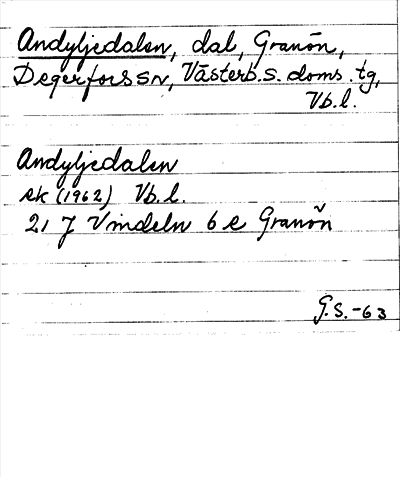 Andyljedalen, dal, Granön,
Degerfors sn, Västerb.s. doms. tg,
Vb.l.
Andyljedalen
ek (1962) Vb.l.
21 J Vindeln 6 e Granön
G.S.-63